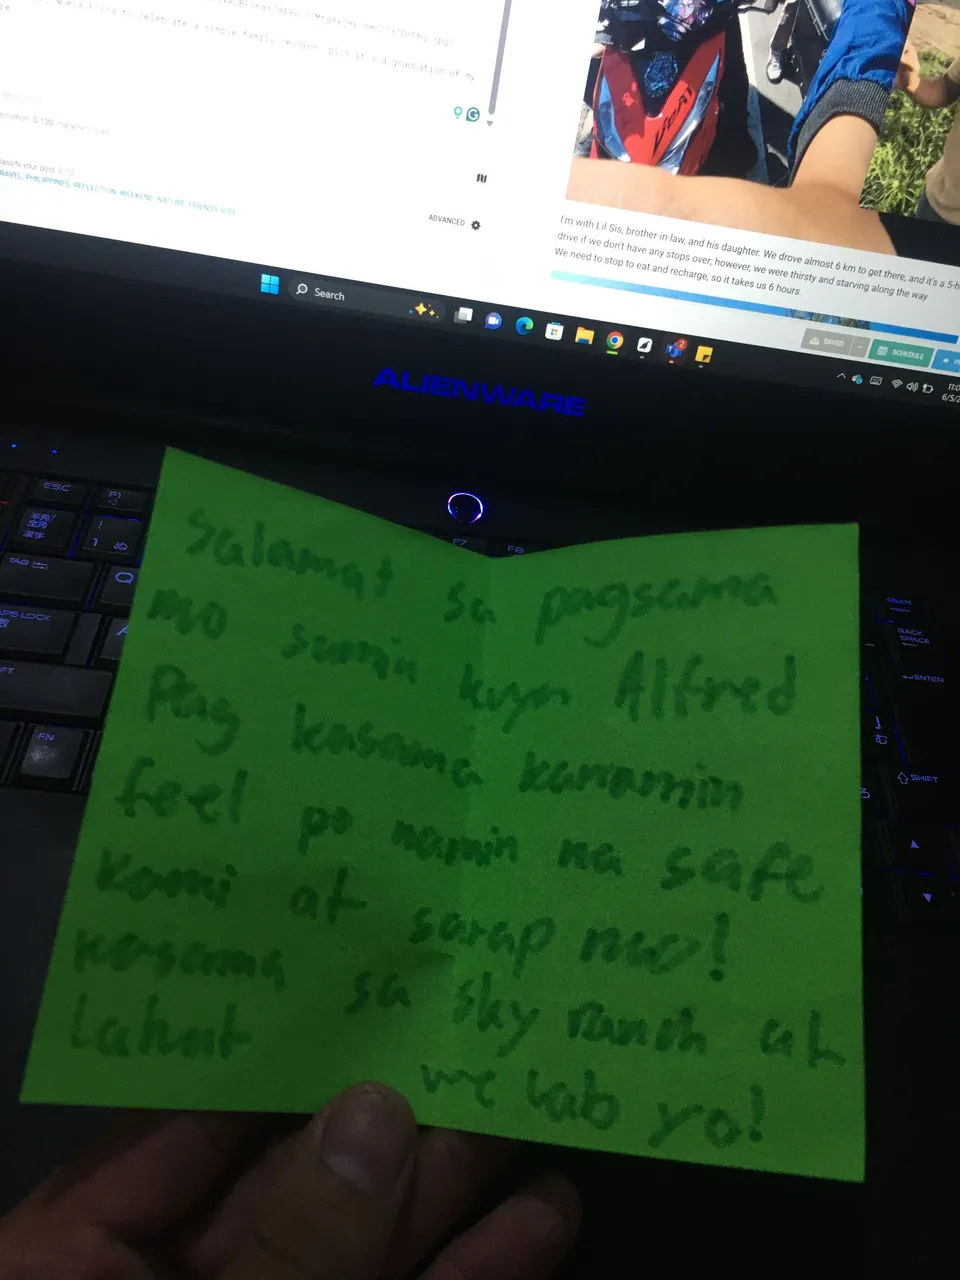 to celebrate a simple family reunion, plus it's a graduation of my
0/120
classify your post. 0/10
TRAVEL, PHILIPPINES, REFLECTION, WEEKEND, NATURE, FRIENDS, RIDE
ADVANCED
I'm with Lil Sis, brother-in-law, and his daughter. We drove almost 6 km to get there, and it's a 5-h
drive if we don't have any stops over; however, we were thirsty and starving along the way
We need to stop to eat and recharge, so it takes us 6 hours.
SAVED
SCHEDULE
Search
2
11:0
6/5/2
ALIENWARE
ESC
F1
半角/
全角
漢字
!
1 ぬ
F7
F8
TAB
Q
CAPS LOCK
A
FN
DELETE
BACK
SPACE
ENTER
む
SHIFT
salamat sa pagsama
mo samin kuya Alfred
Pag kasama kanamin
feel po namin na safe
kami at sarap mo!
kasama sa sky ranch at
Lahat
we lab yo!